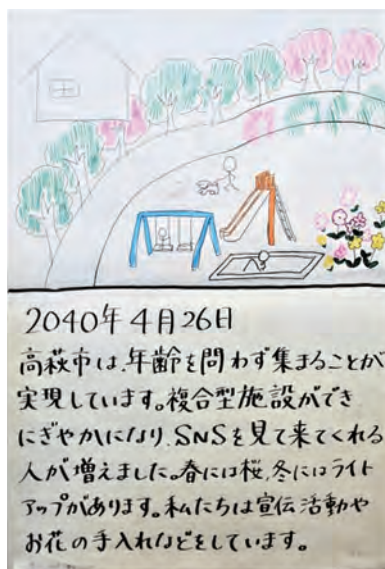 2040年4月26日
高萩市は、年齢を問わず集まることが
実現しています。複合型施設ができ
にぎやかになり、SNSを見て来てくれる
人が増えました。春には桜、冬にはライト
アップがあります。私たちは宣伝活動や
お花の手入れなどをしています。